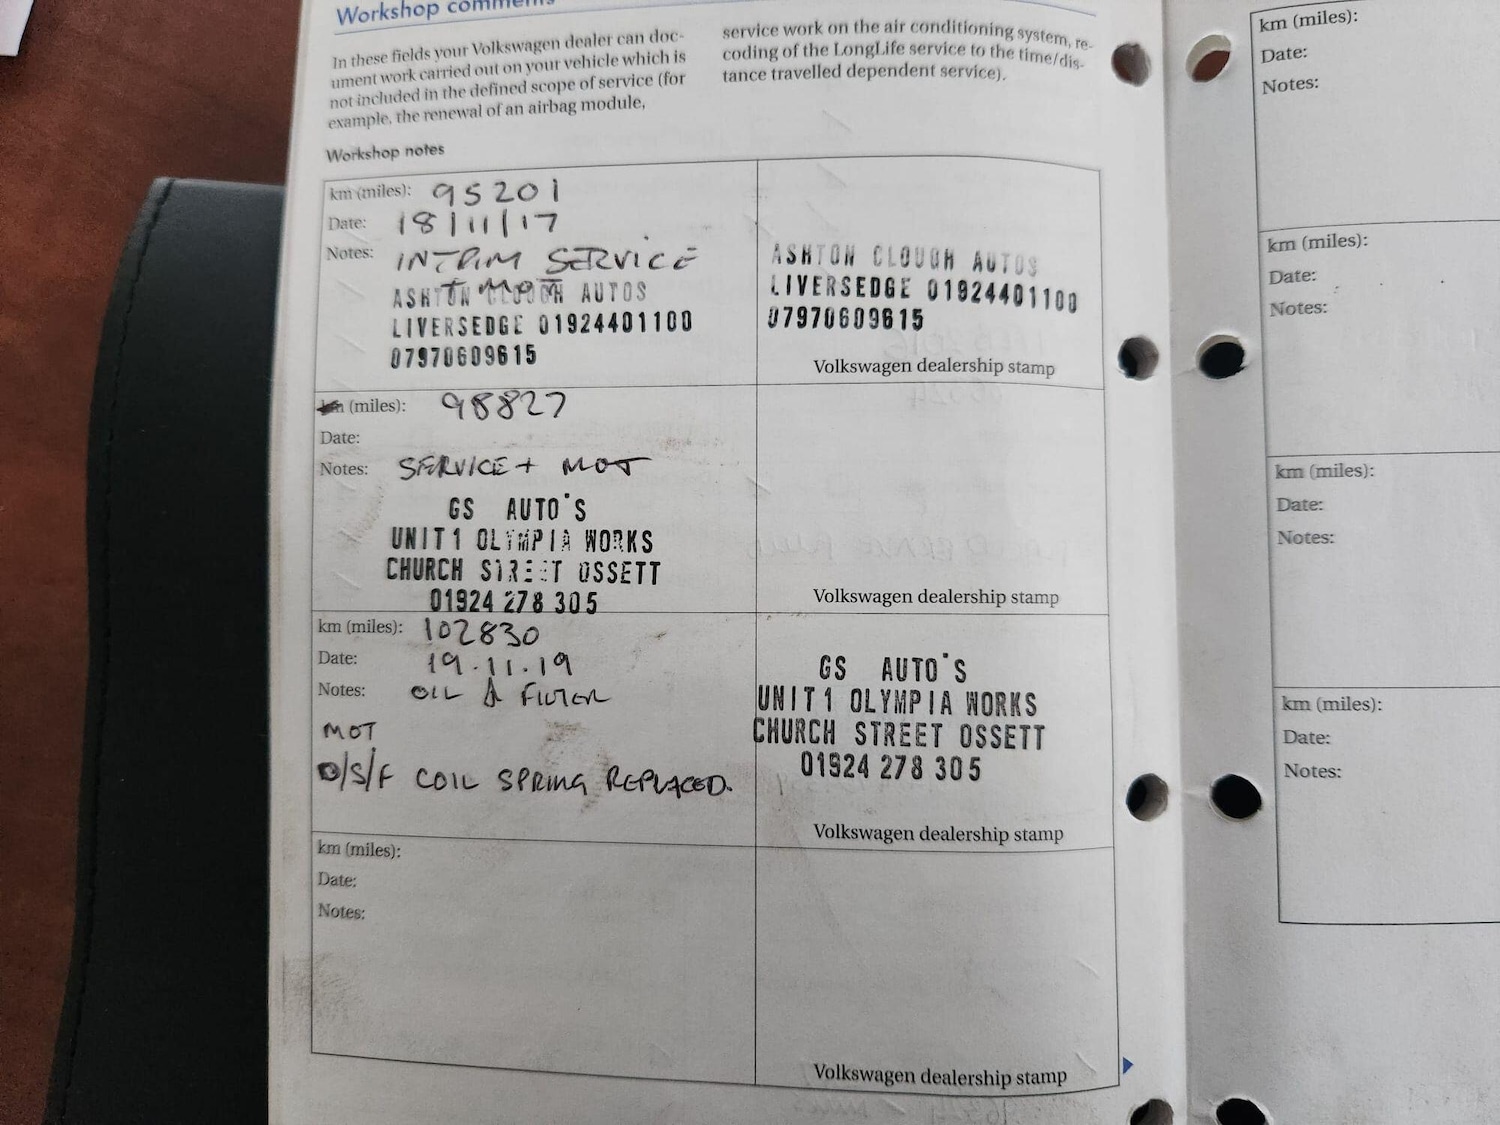 Workshop comments
In these fields your Volkswagen dealer can doc-
ument work carried out on your vehicle which is
not included in the defined scope of service (for
example, the renewal of an airbag module,
service work on the air conditioning system, re-
coding of the LongLife service to the time/dis-
tance travelled dependent service).
Workshop notes
km (miles): 95201
Date: 18/11/17
Notes: INTRIM SERVICE
+ MOT
ASHTON CLOUGH AUTOS
LIVERSEDGE 01924401100
07970609615
ASHTON CLOUGH AUTOS
LIVERSEDGE 01924401100
07970609615
Volkswagen dealership stamp
km (miles): 98827
Date:
Notes: SERVICE + MOT
GS AUTO'S
UNIT1 OLYMPIA WORKS
CHURCH STREET OSSETT
01924 278 305
Volkswagen dealership stamp
km (miles): 102830
Date: 19.11.19
Notes: OIL & FILTER
MOT
O/S/F COIL SPRING REPLACED.
GS AUTO'S
UNIT1 OLYMPIA WORKS
CHURCH STREET OSSETT
01924 278 305
Volkswagen dealership stamp
km (miles):
Date:
Notes:
Volkswagen dealership stamp
km (miles):
Date:
Notes:
km (miles):
Date:
Notes:
km (miles):
Date:
Notes:
km (miles):
Date:
Notes: